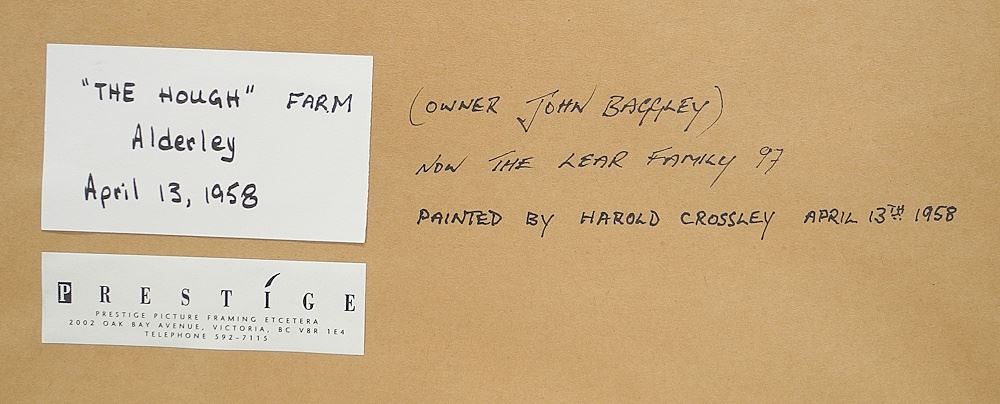 "THE HOUGH" FARM
Alderley
April 13, 1958
(OWNER JOHN BAGGLEY)
NOW THE LEAR FAMILY 97
PAINTED BY HAROLD CROSSLEY APRIL 13TH 1958
PRESTIGE
PRESTIGE PICTURE FRAMING ETCETERA
2002 OAK BAY AVENUE, VICTORIA, BC V8R 1E4
TELEPHONE 592-7115